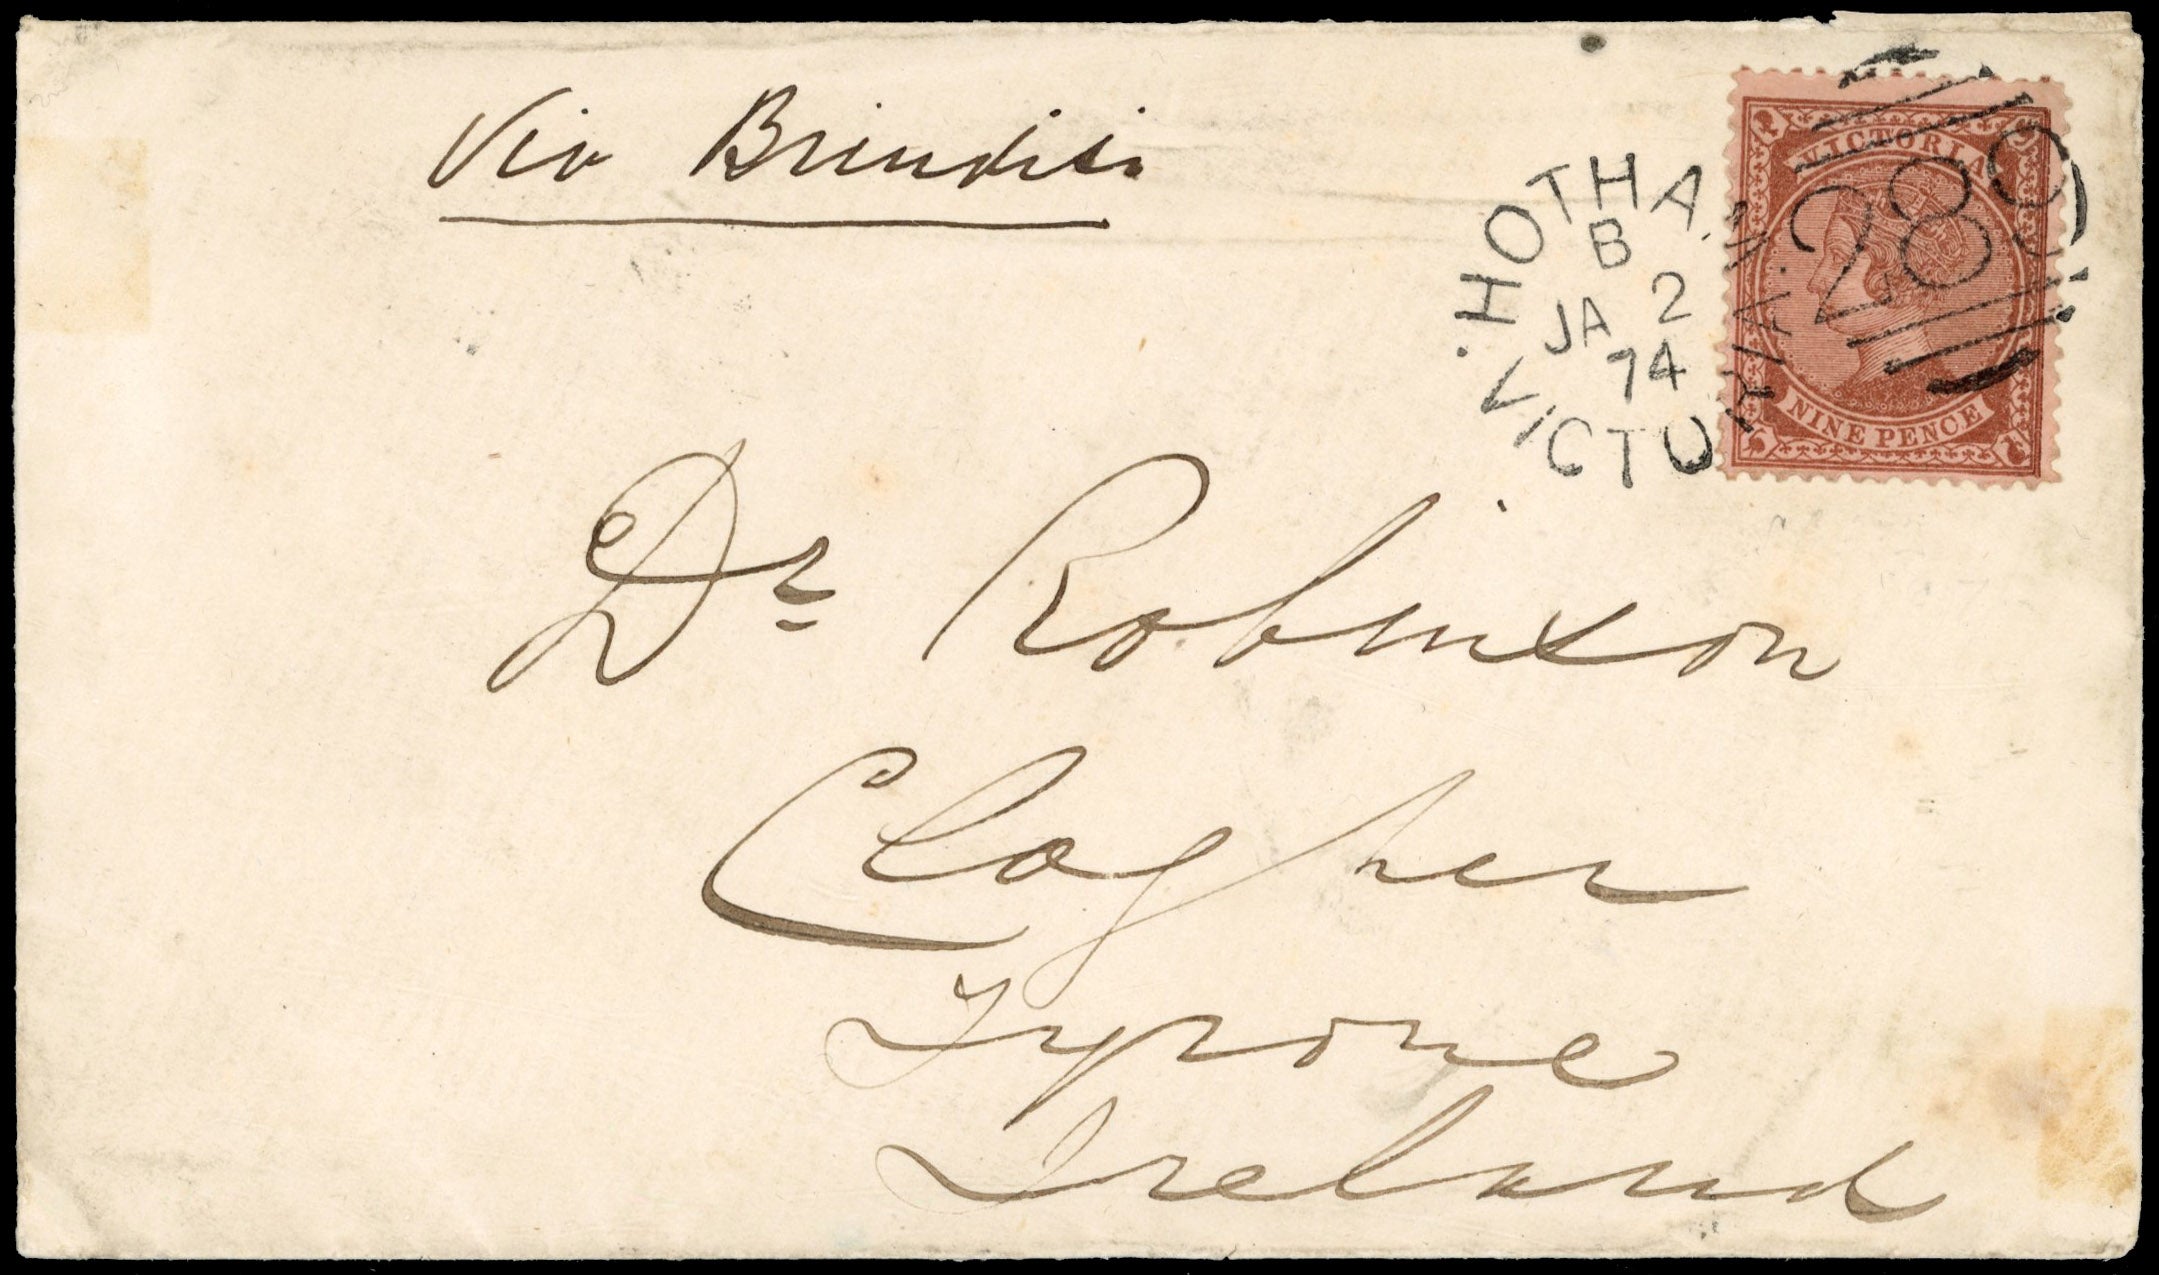 Via Brindisi
HOTHAM
B
JA 2
74
VICTORIA
VICTORIA
289
NINE PENCE
Dr Robinson
Clogher
Tyrone
Ireland